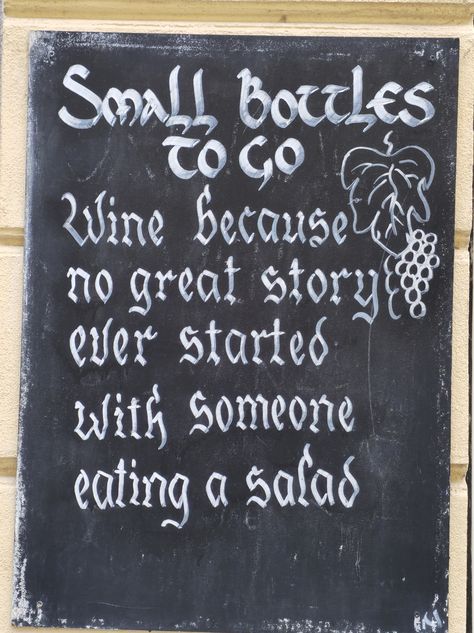 Small Bottles
to go
Wine because
no great story
ever started
with someone
eating a salad